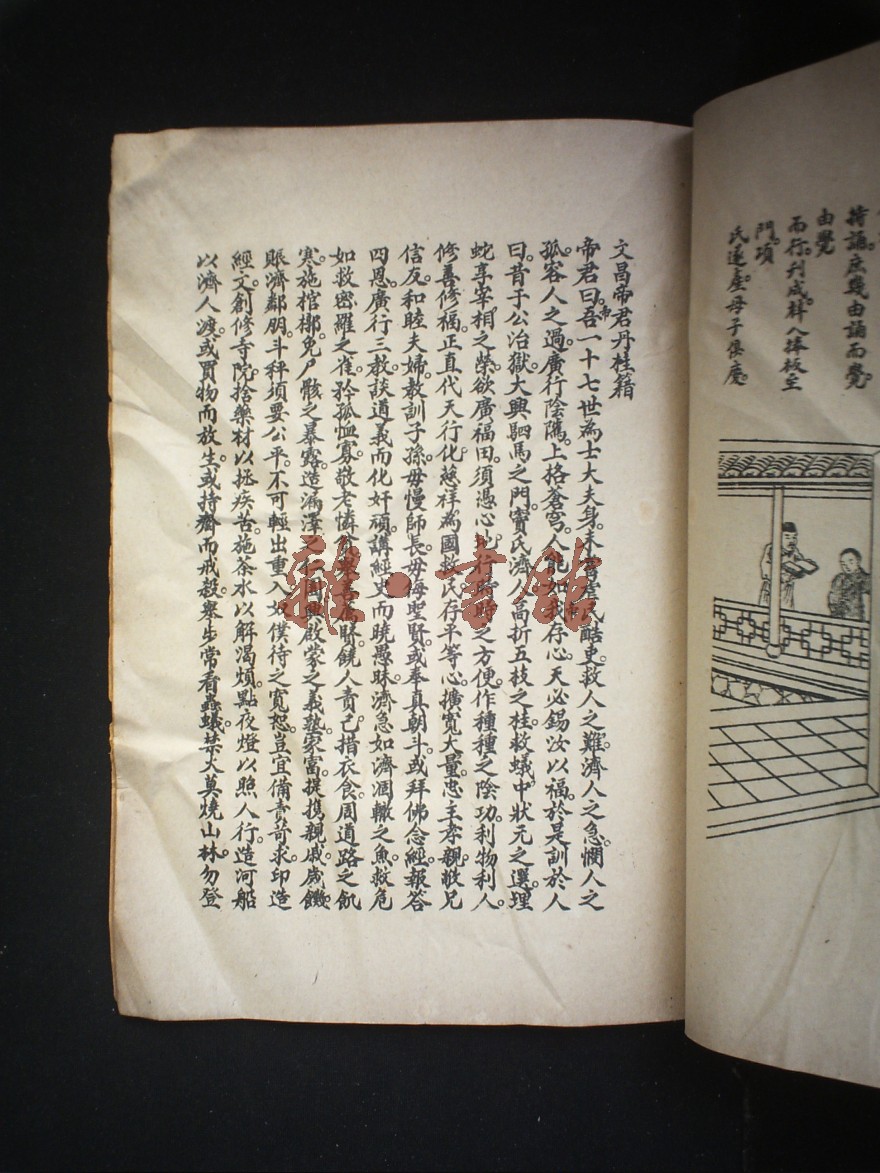 持誦。庶幾由誦而覺。
由覺
而行。刊成。梓人捧板至
門。項
氏遂產。母子俱慶。
文昌帝君丹桂籍
帝君曰。吾一十七世為士大夫身。未嘗虐民酷吏。救人之難。濟人之急。憫人之
孤。容人之過。廣行陰隲。上格蒼穹。人能如我存心。天必錫汝以福。於是訓於人
曰。昔于公治獄。大興駟馬之門。竇氏濟人。高折五枝之桂。救蟻中狀元之選。埋
蛇享宰相之榮。欲廣福田。須憑心地。行時時之方便。作種種之陰功。利物利人。
修善修福。正直代天行化。慈祥為國救民。存平等心。擴寬大量。忠主孝親。敬兄
信友。和睦夫婦。教訓子孫。毋慢師長。毋侮聖賢。或奉真朝斗。或拜佛念經。報答
四恩。廣行三教。談道義而化奸頑。講經史而曉愚昧。濟急如濟涸轍之魚。救危
如救密羅之雀。矜孤恤寡。敬老憐貧。舉善薦賢。饒人責己。措衣食。周道路之飢
寒。施棺槨。免尸骸之暴露。造漏澤之仁園。興啟蒙之義塾。家富。提攜親戚。歲饑。
賑濟鄰朋。斗秤須要公平。不可輕出重入。奴僕待之寬恕。豈宜備責苛求。印造
經文。創修寺院。捨藥材以拯疾苦。施茶水以解渴煩。點夜燈以照人行。造河船
以濟人渡。或買物而放生。或持齋而戒殺。舉步常看蟲蟻。禁火莫燒山林。勿登
雅·書館